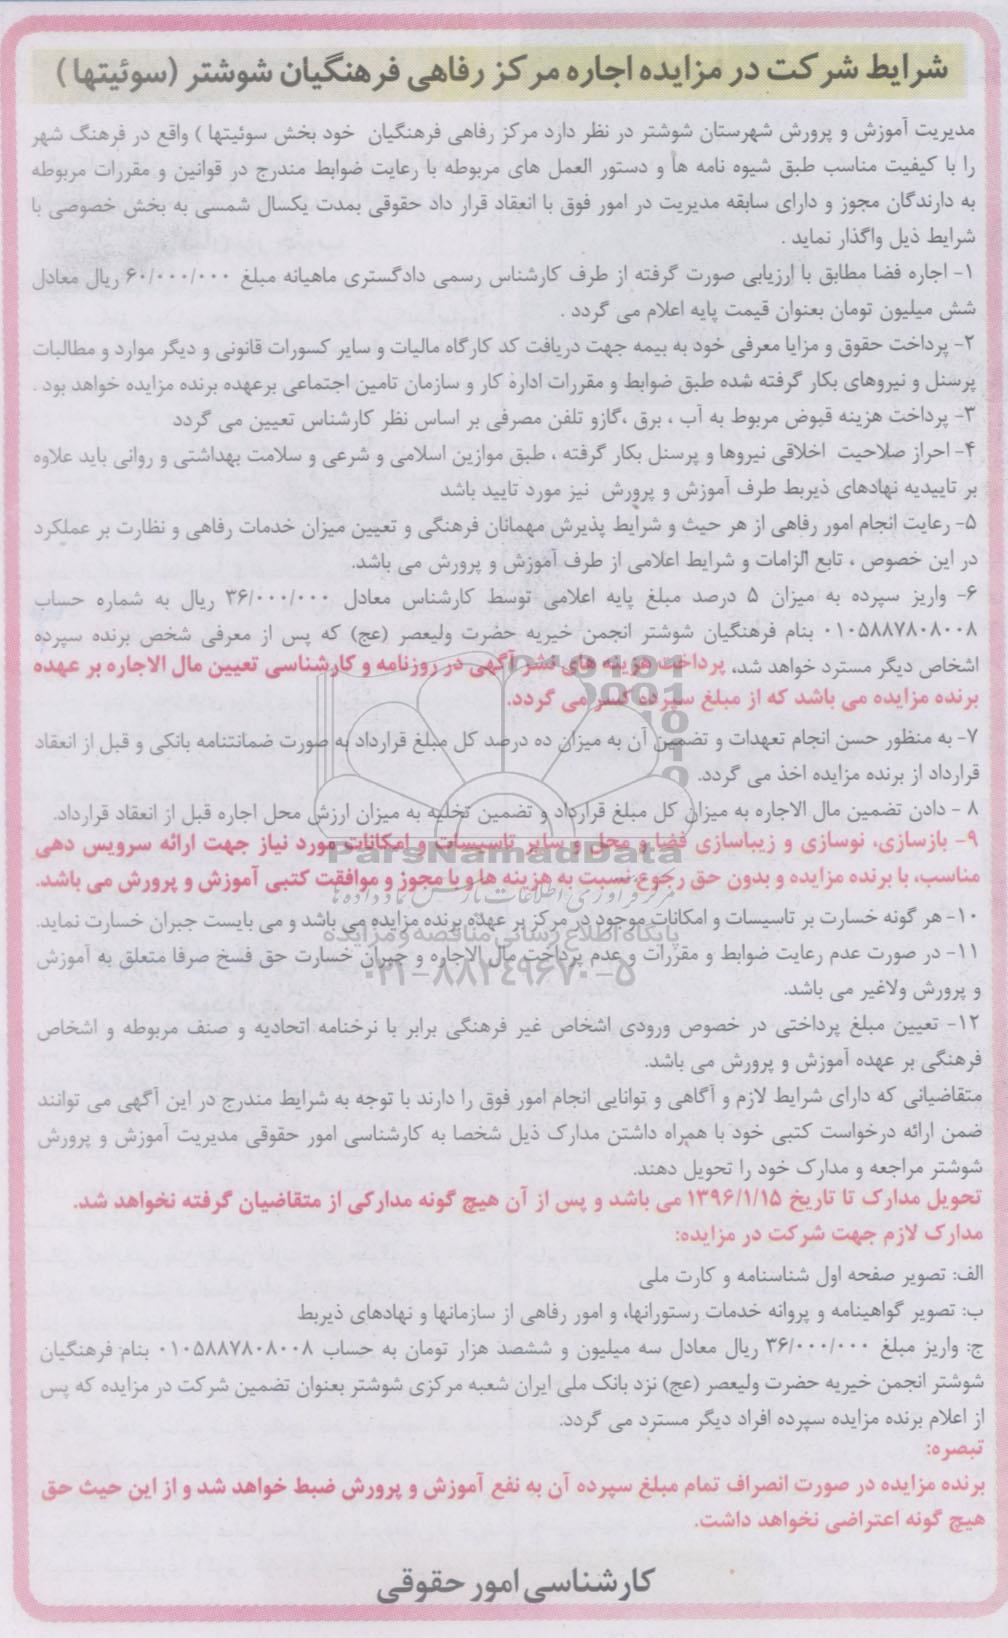 شرایط شرکت در مزایده اجاره مرکز رفاهی فرهنگیان شوشتر (سوئیتها)
مدیریت آموزش و پرورش شهرستان شوشتر در نظر دارد مرکز رفاهی فرهنگیان خود بخش سوئیتها ) واقع در فرهنگ شهر
را با کیفیت مناسب طبق شیوه نامه ها و دستور العمل های مربوطه با رعایت ضوابط مندرج در قوانین و مقررات مربوطه
به دارندگان مجوز و دارای سابقه مدیریت در امور فوق با انعقاد قرار داد حقوقی بمدت یکسال شمسی به بخش خصوصی با
شرایط ذیل واگذار نماید .
۱- اجاره فضا مطابق با ارزیابی صورت گرفته از طرف کارشناس رسمی دادگستری ماهیانه مبلغ ۶۰/۰۰۰/۰۰۰ ریال معادل
شش میلیون تومان بعنوان قیمت پایه اعلام می گردد .
۲- پرداخت حقوق و مزایا معرفی خود به بیمه جهت دریافت کد کارگاه مالیات و سایر کسورات قانونی و دیگر موارد و مطالبات
پرسنل و نیروهای بکار گرفته شده طبق ضوابط و مقررات اداره کار و سازمان تامین اجتماعی برعهده برنده مزایده خواهد بود .
۳- پرداخت هزینه قبوض مربوط به آب ، برق ،گازو تلفن مصرفی بر اساس نظر کارشناس تعیین می گردد
۴- احراز صلاحیت اخلاقی نیروها و پرسنل بکار گرفته ، طبق موازین اسلامی و شرعی و سلامت بهداشتی و روانی باید علاوه
بر تاییدیه نهادهای ذیربط طرف آموزش و پرورش نیز مورد تایید باشد
۵- رعایت انجام امور رفاهی از هر حیث و شرایط پذیرش مهمانان فرهنگی و تعیین میزان خدمات رفاهی و نظارت بر عملکرد
در این خصوص ، تابع الزامات و شرایط اعلامی از طرف آموزش و پرورش می باشد.
۶- واریز سپرده به میزان ۵ درصد مبلغ پایه اعلامی توسط کارشناس معادل ۳۶/۰۰۰/۰۰۰ ریال به شماره حساب
۰۱۰۵۸۸۷۸۰۸۰۰۸ بنام فرهنگیان شوشتر انجمن خیریه حضرت ولیعصر (عج) که پس از معرفی شخص برنده سپرده
اشخاص دیگر مسترد خواهد شد، پرداخت هزینه های نشر آگهی در روزنامه و کارشناسی تعیین مال الاجاره بر عهده
برنده مزایده می باشد که از مبلغ سپرده کسر می گردد.
۷- به منظور حسن انجام تعهدات و تضمین آن به میزان ده درصد کل مبلغ قرارداد به صورت ضمانتنامه بانکی و قبل از انعقاد
قرارداد از برنده مزایده اخذ می گردد.
۸ - دادن تضمین مال الاجاره به میزان کل مبلغ قرارداد و تضمین تخلیه به میزان ارزش محل اجاره قبل از انعقاد قرارداد.
۹- بازسازی، نوسازی و زیباسازی فضا و محل و سایر تاسیسات و امکانات مورد نیاز جهت ارائه سرویس دهی
ParsNamadData
مناسب، با برنده مزایده و بدون حق رجوع نسبت به هزینه ها و با مجوز و موافقت کتبی آموزش و پرورش می باشد.
مرکز فرآوری اطلاعات پارس نماد داده ها
۱۰- هر گونه خسارت بر تاسیسات و امکانات موجود در مرکز بر عهده برنده مزایده می باشد و می بایست جبران خسارت نماید.
پایگاه اطلاع رسانی مناقصه و مزایده
۱۱- در صورت عدم رعایت ضوابط و مقررات و عدم پرداخت مال الاجاره و جبران خسارت حق فسخ صرفا متعلق به آموزش
۰۲۱-۸۸۳۴۹۶۷۰-۵
و پرورش ولاغیر می باشد.
۱۲- تعیین مبلغ پرداختی در خصوص ورودی اشخاص غیر فرهنگی برابر با نرخنامه اتحادیه و صنف مربوطه و اشخاص
فرهنگی بر عهده آموزش و پرورش می باشد.
متقاضیانی که دارای شرایط لازم و آگاهی و توانایی انجام امور فوق را دارند با توجه به شرایط مندرج در این آگهی می توانند
ضمن ارائه درخواست کتبی خود با همراه داشتن مدارک ذیل شخصا به کارشناسی امور حقوقی مدیریت آموزش و پرورش
شوشتر مراجعه و مدارک خود را تحویل دهند.
تحویل مدارک تا تاریخ ۱۳۹۶/۱/۱۵ می باشد و پس از آن هیچ گونه مدارکی از متقاضیان گرفته نخواهد شد.
مدارک لازم جهت شرکت در مزایده:
الف: تصویر صفحه اول شناسنامه و کارت ملی
ب: تصویر گواهینامه و پروانه خدمات رستورانها، و امور رفاهی از سازمانها و نهادهای ذیربط
ج: واریز مبلغ ۳۶/۰۰۰/۰۰۰ ریال معادل سه میلیون و ششصد هزار تومان به حساب ۰۱۰۵۸۸۷۸۰۸۰۰۸ بنام فرهنگیان
شوشتر انجمن خیریه حضرت ولیعصر (عج) نزد بانک ملی ایران شعبه مرکزی شوشتر بعنوان تضمین شرکت در مزایده که پس
از اعلام برنده مزایده سپرده افراد دیگر مسترد می گردد.
تبصره:
برنده مزایده در صورت انصراف تمام مبلغ سپرده آن به نفع آموزش و پرورش ضبط خواهد شد و از این حیث حق
هیچ گونه اعتراضی نخواهد داشت.
کارشناسی امور حقوقی